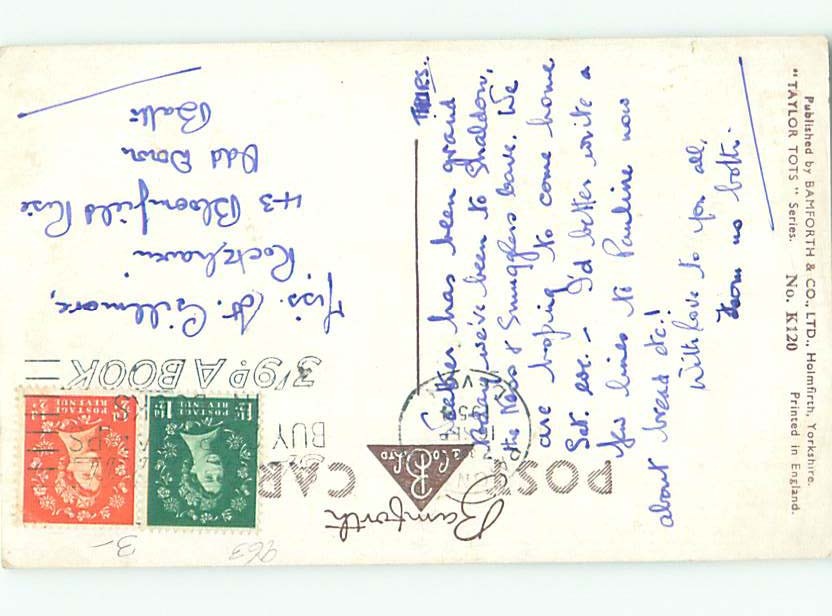 Published by BAMFORTH & CO., LTD., Holmfirth, Yorkshire.
Printed in England.
"TAYLOR TOTS" Series. No. K120
Bamforth
B & Co. LTD
POST CARD
THURS..
Weather has been grand
today, we've been to Shaldon,
the Ness & Smugglers Cave. We
are hoping to come home
Sat. eve. - I'd better write a
few lines to Pauline now
about bread etc.!
With love to you all,
from us both.
Miss. A. Gillmore,
Rockhaven
43 Bloomfield Rise
Odd Down
Bath
BUY
3'9 P. A BOOK
POSTAGE
REVENUE
POSTAGE
REVENUE
963
3-